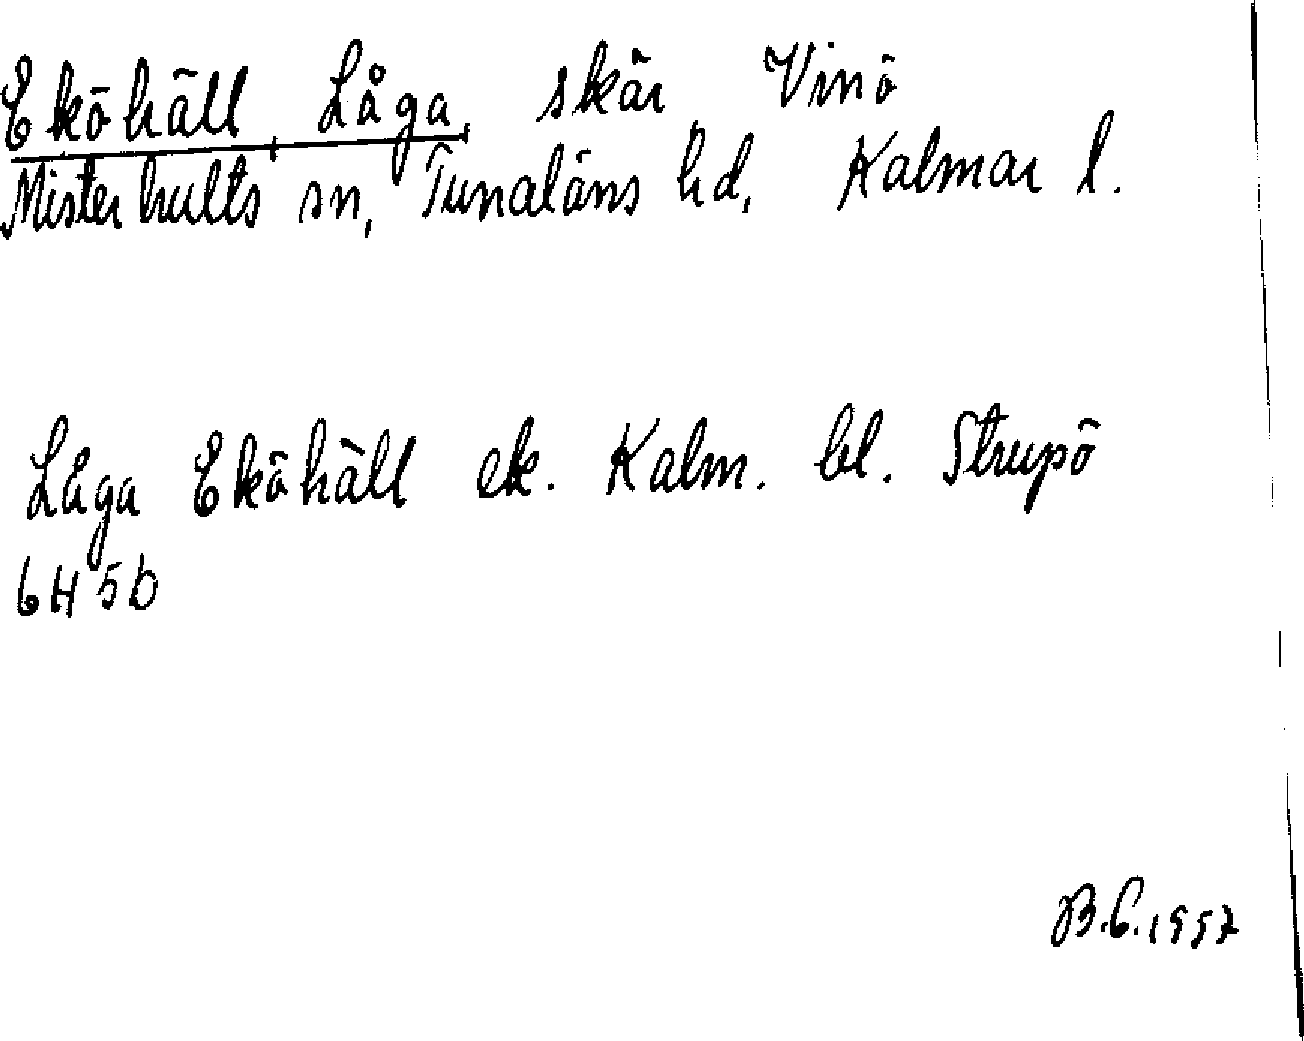 Eköhäll, Låga, skär, Vinö
Misterhults sn, Tunaläns hd, Kalmar l.
Låga Eköhäll ek. Kalm. bl. Strupö
6H5b
B.C. 1957